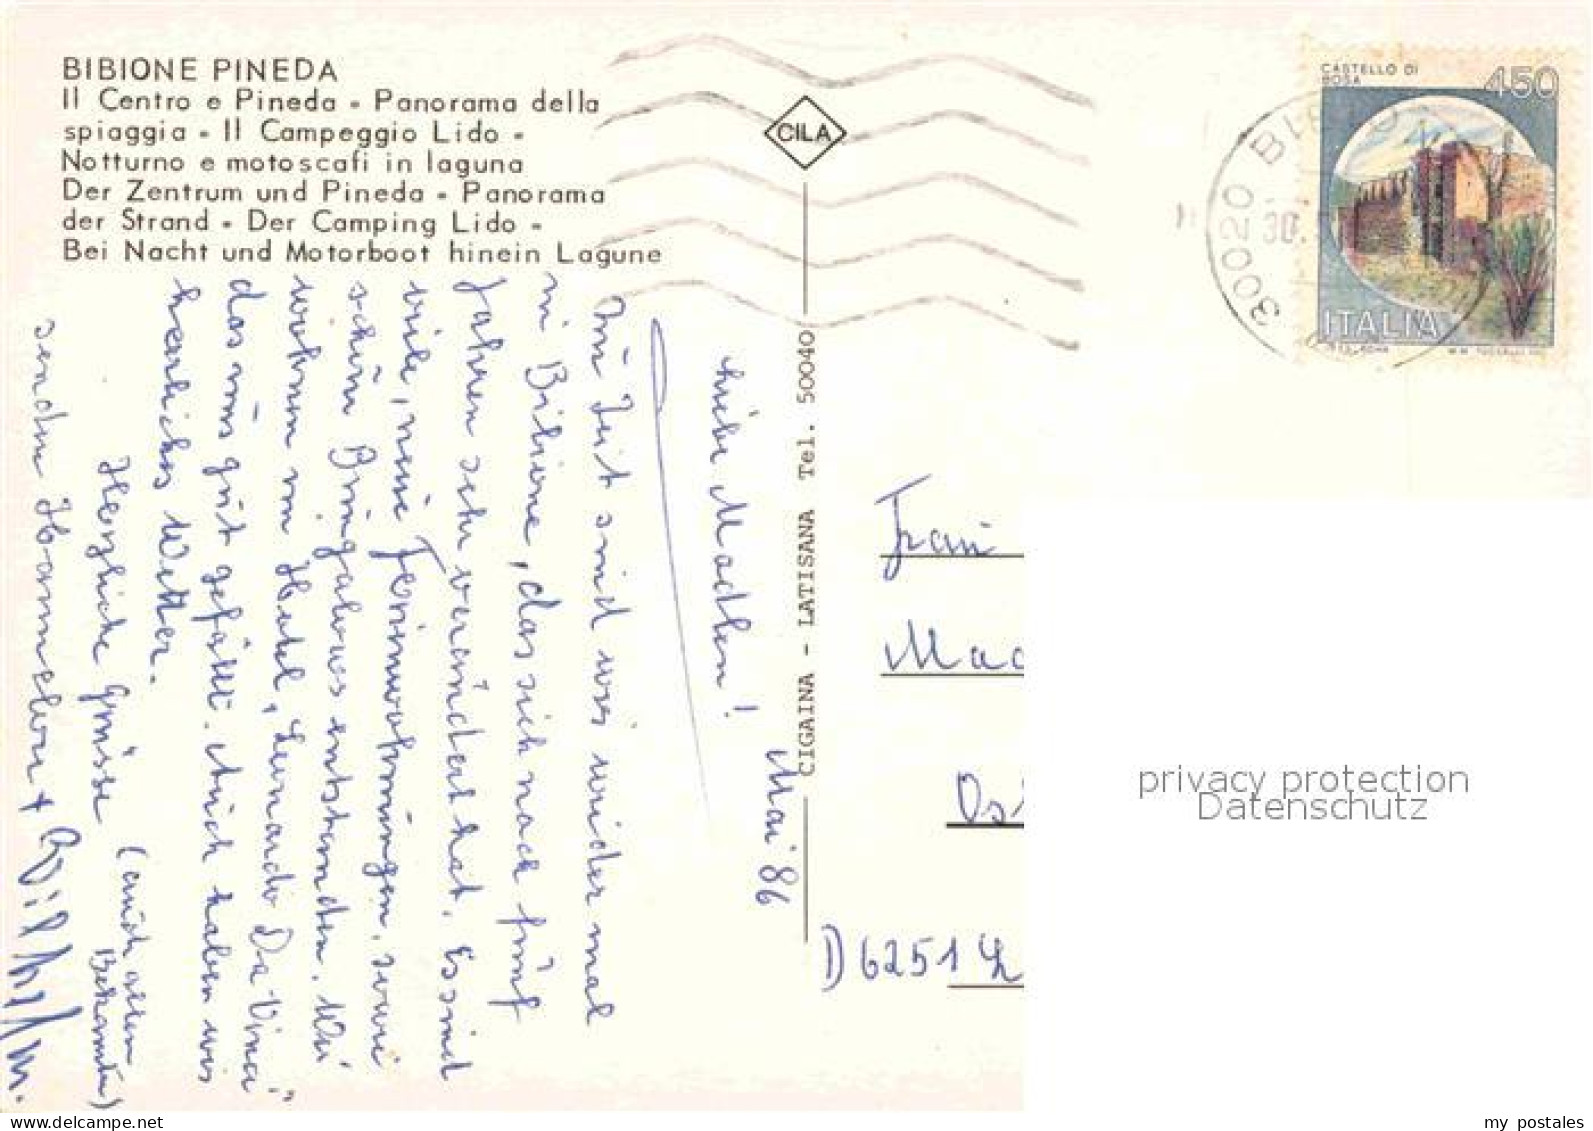 BIBIONE PINEDA
Il Centro e Pineda - Panorama della
spiaggia - Il Campeggio Lido -
Notturno e motoscafi in laguna
Der Zentrum und Pineda - Panorama
der Strand - Der Camping Lido -
Bei Nacht und Motorboot hinein Lagune
CILA
CIGAINA - LATISANA Tel. 50040
CASTELLO DI
BOSA
450
ITALIA
30020 BIBIO
30.
Mai 86
Liebe Madlen!
Zur Zeit sind wir wieder mal
in Bibione, das sich nach fünf
Jahren sehr verändert hat. Es sind
viele, neue Ferienwohnungen, sowie
schöne Bungalows entstanden. Wir
wohnen im Hotel „Leonardo Da Vinci"
das uns gut gefällt. Auch haben wir
herrliches Wetter.
Herzliche Grüsse
(auch allen
Bekannten)
senden Hannelore +
Frau
Mad
Ost
D 6251 L
privacy protection
Datenschutz
my postales
www.delcampe.net